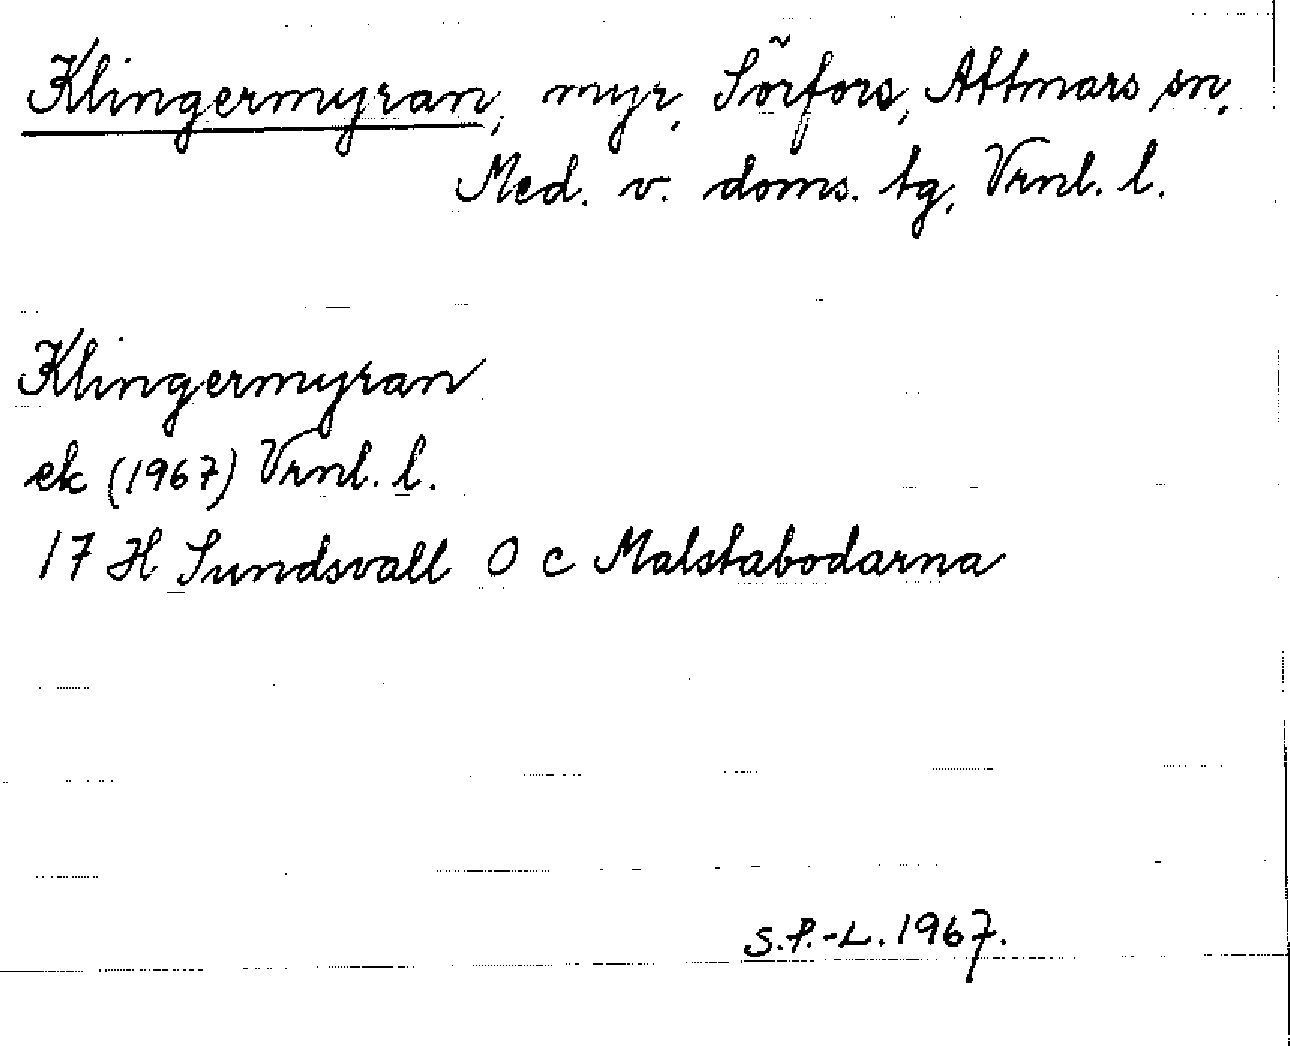 Klingermyran, myr, Sörfors, Attmars sn,
Med. v. doms. tg, Vrnl. l.
Klingermyran
ek (1967) Vrnl. l.
17 H Sundsvall O c Malstabodarna
S.P.-L. 1967.